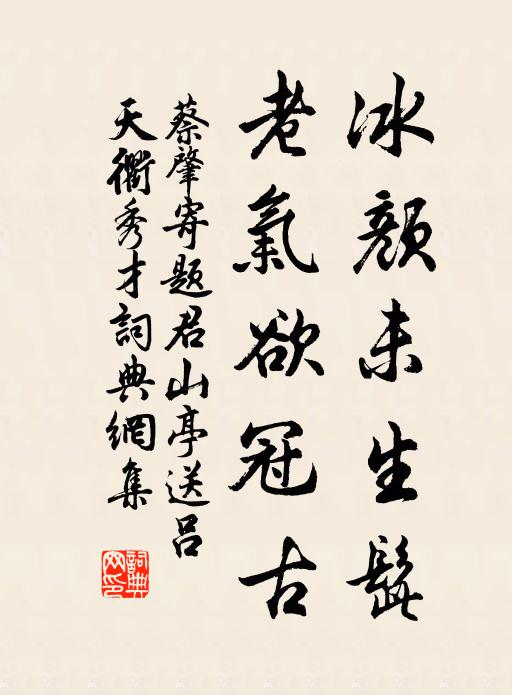 冰顏未生髭
老氣欲冠古
蔡肇寄題君山亭送呂
天衢秀才詞典網集
詞典
网印